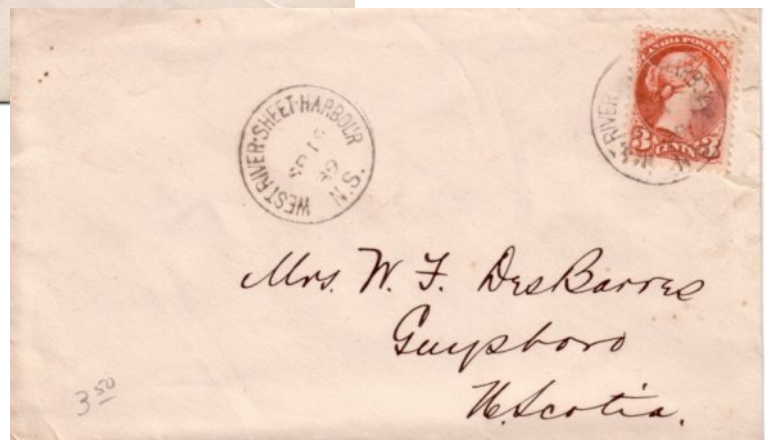 WEST RIVER·SHEET·HARBOUR
N.S.
CANADA POSTAGE
3 CENTS 3
Mrs. W. F. DesBarres
Guysboro
N. Scotia.
3 50